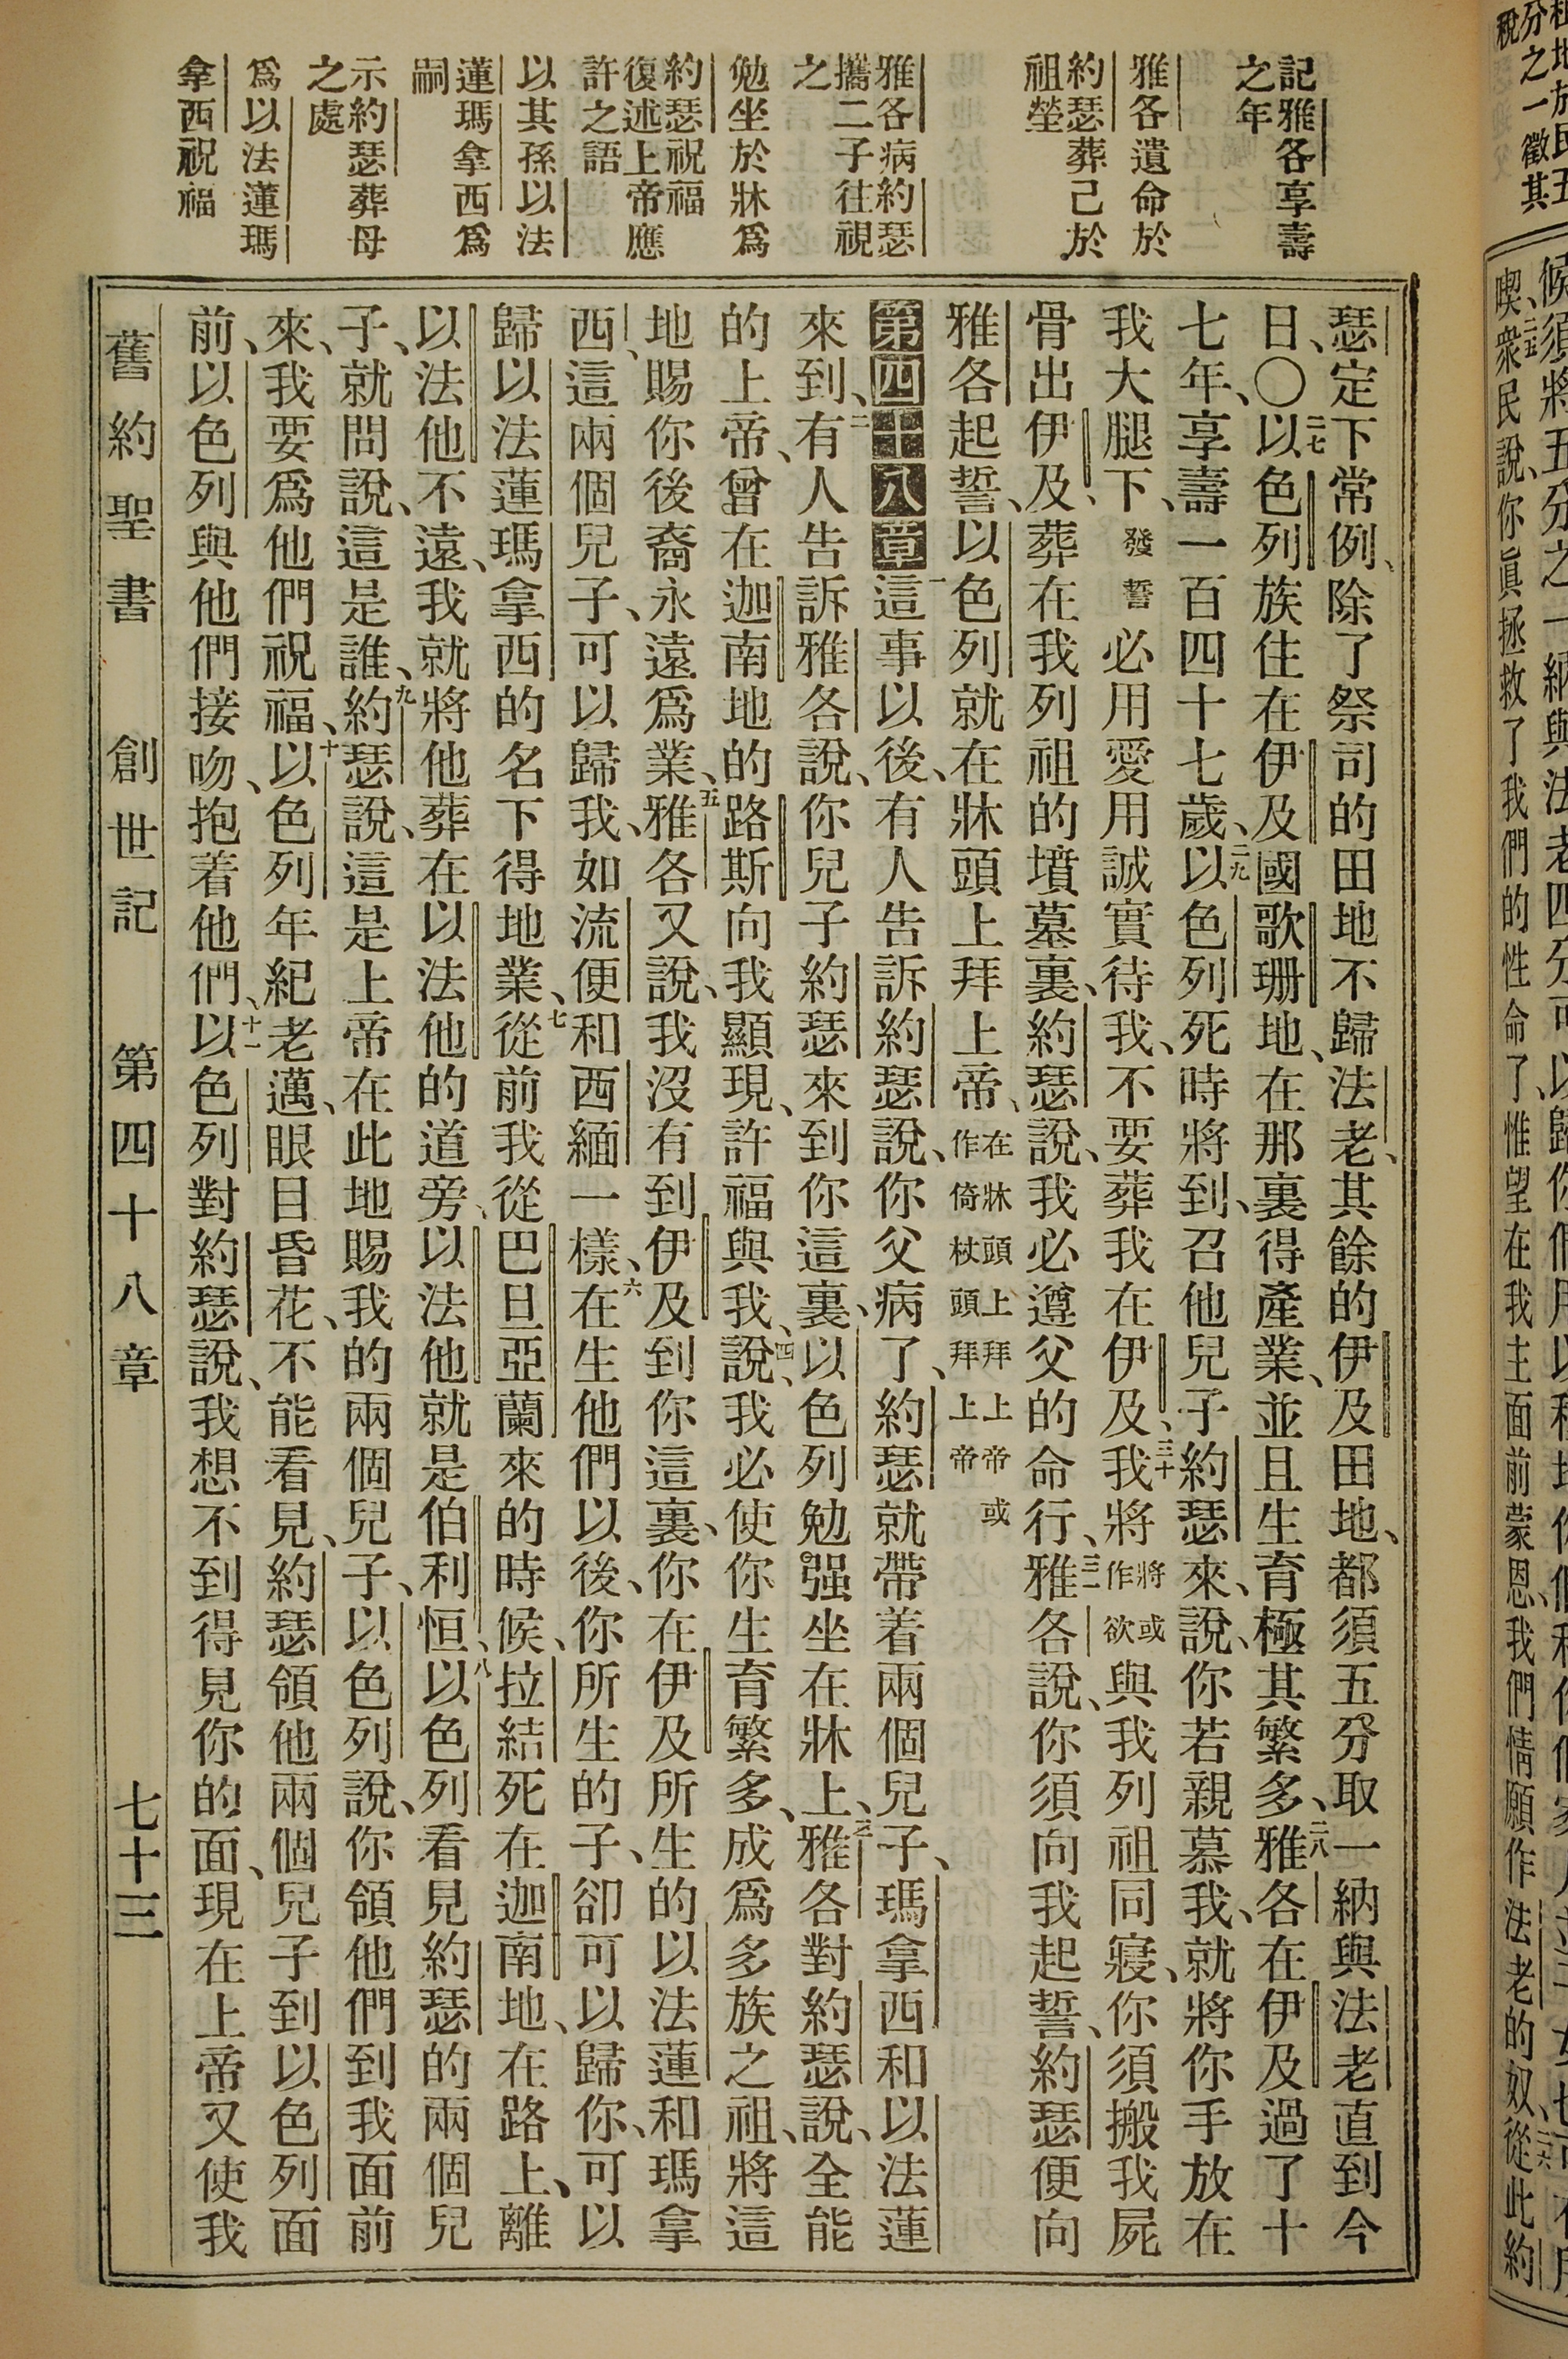 記雅各享壽
之年
雅各遺命於
約瑟葬己於
祖塋
雅各病約瑟
攜二子往視
之
勉坐於牀爲
約瑟祝福
復述上帝應
許之語
以其孫以法
蓮瑪拿西爲
嗣
示約瑟葬母
之處
爲以法蓮瑪
拿西祝福
瑟定下常例、除了祭司的田地不歸法老、其餘的伊及田地、都須五分取一納與法老直到今
日、〇二七以色列族住在伊及國歌珊地、在那裏得產業、並且生育極其繁多、二八雅各在伊及過了十
七年、享壽一百四十七歲、二九以色列死時將到、召他兒子約瑟來、說、你若親慕我、就將你手放在
我大腿下、發誓必用愛用誠實待我、不要葬我在伊及、三十我將將或作欲與我列祖同寢、你須搬我屍
骨出伊及、葬在我列祖的墳墓裏、約瑟說、我必遵父的命行、三一雅各說、你須向我起誓、約瑟便向
雅各起誓、以色列就在牀頭上拜上帝、在牀頭上拜上帝或作倚杖頭拜上帝
第四十八章 一這事以後、有人告訴約瑟說、你父病了、約瑟就帶着兩個兒子、瑪拿西和以法蓮
來到、二有人告訴雅各說、你兒子約瑟來到你這裏、以色列勉强坐在牀上、三雅各對約瑟說、全能
的上帝、曾在迦南地的路斯向我顯現、許福與我、四說、我必使你生育繁多、成爲多族之祖、將這
地賜你後裔永遠爲業、五雅各又說、我沒有到伊及到你這裏、你在伊及所生的以法蓮和瑪拿
西、這兩個兒子、可以歸我、如流便和西緬一樣、六在生他們以後、你所生的子、卻可以歸你、可以
歸以法蓮瑪拿西的名下得地業、七從前我從巴旦亞蘭來的時候、拉結死在迦南地、在路上、離
以法他不遠、我就將他葬在以法他的道旁、以法他就是伯利恒、八以色列看見約瑟的兩個兒
子、就問說、這是誰、九約瑟說、這是上帝在此地賜我的兩個兒子、以色列說、你領他們到我面前
來、我要爲他們祝福、十以色列年紀老邁、眼目昏花、不能看見、約瑟領他兩個兒子到以色列面
前、以色列與他們接吻、抱着他們、十一以色列對約瑟說、我想不到得見你的面、現在上帝又使我
舊約聖書 創世記 第四十八章 七十三
喫、衆民說、你眞拯救了我們的性命了、惟望在我主面前蒙恩、我們情願作法老的奴、二六從此約